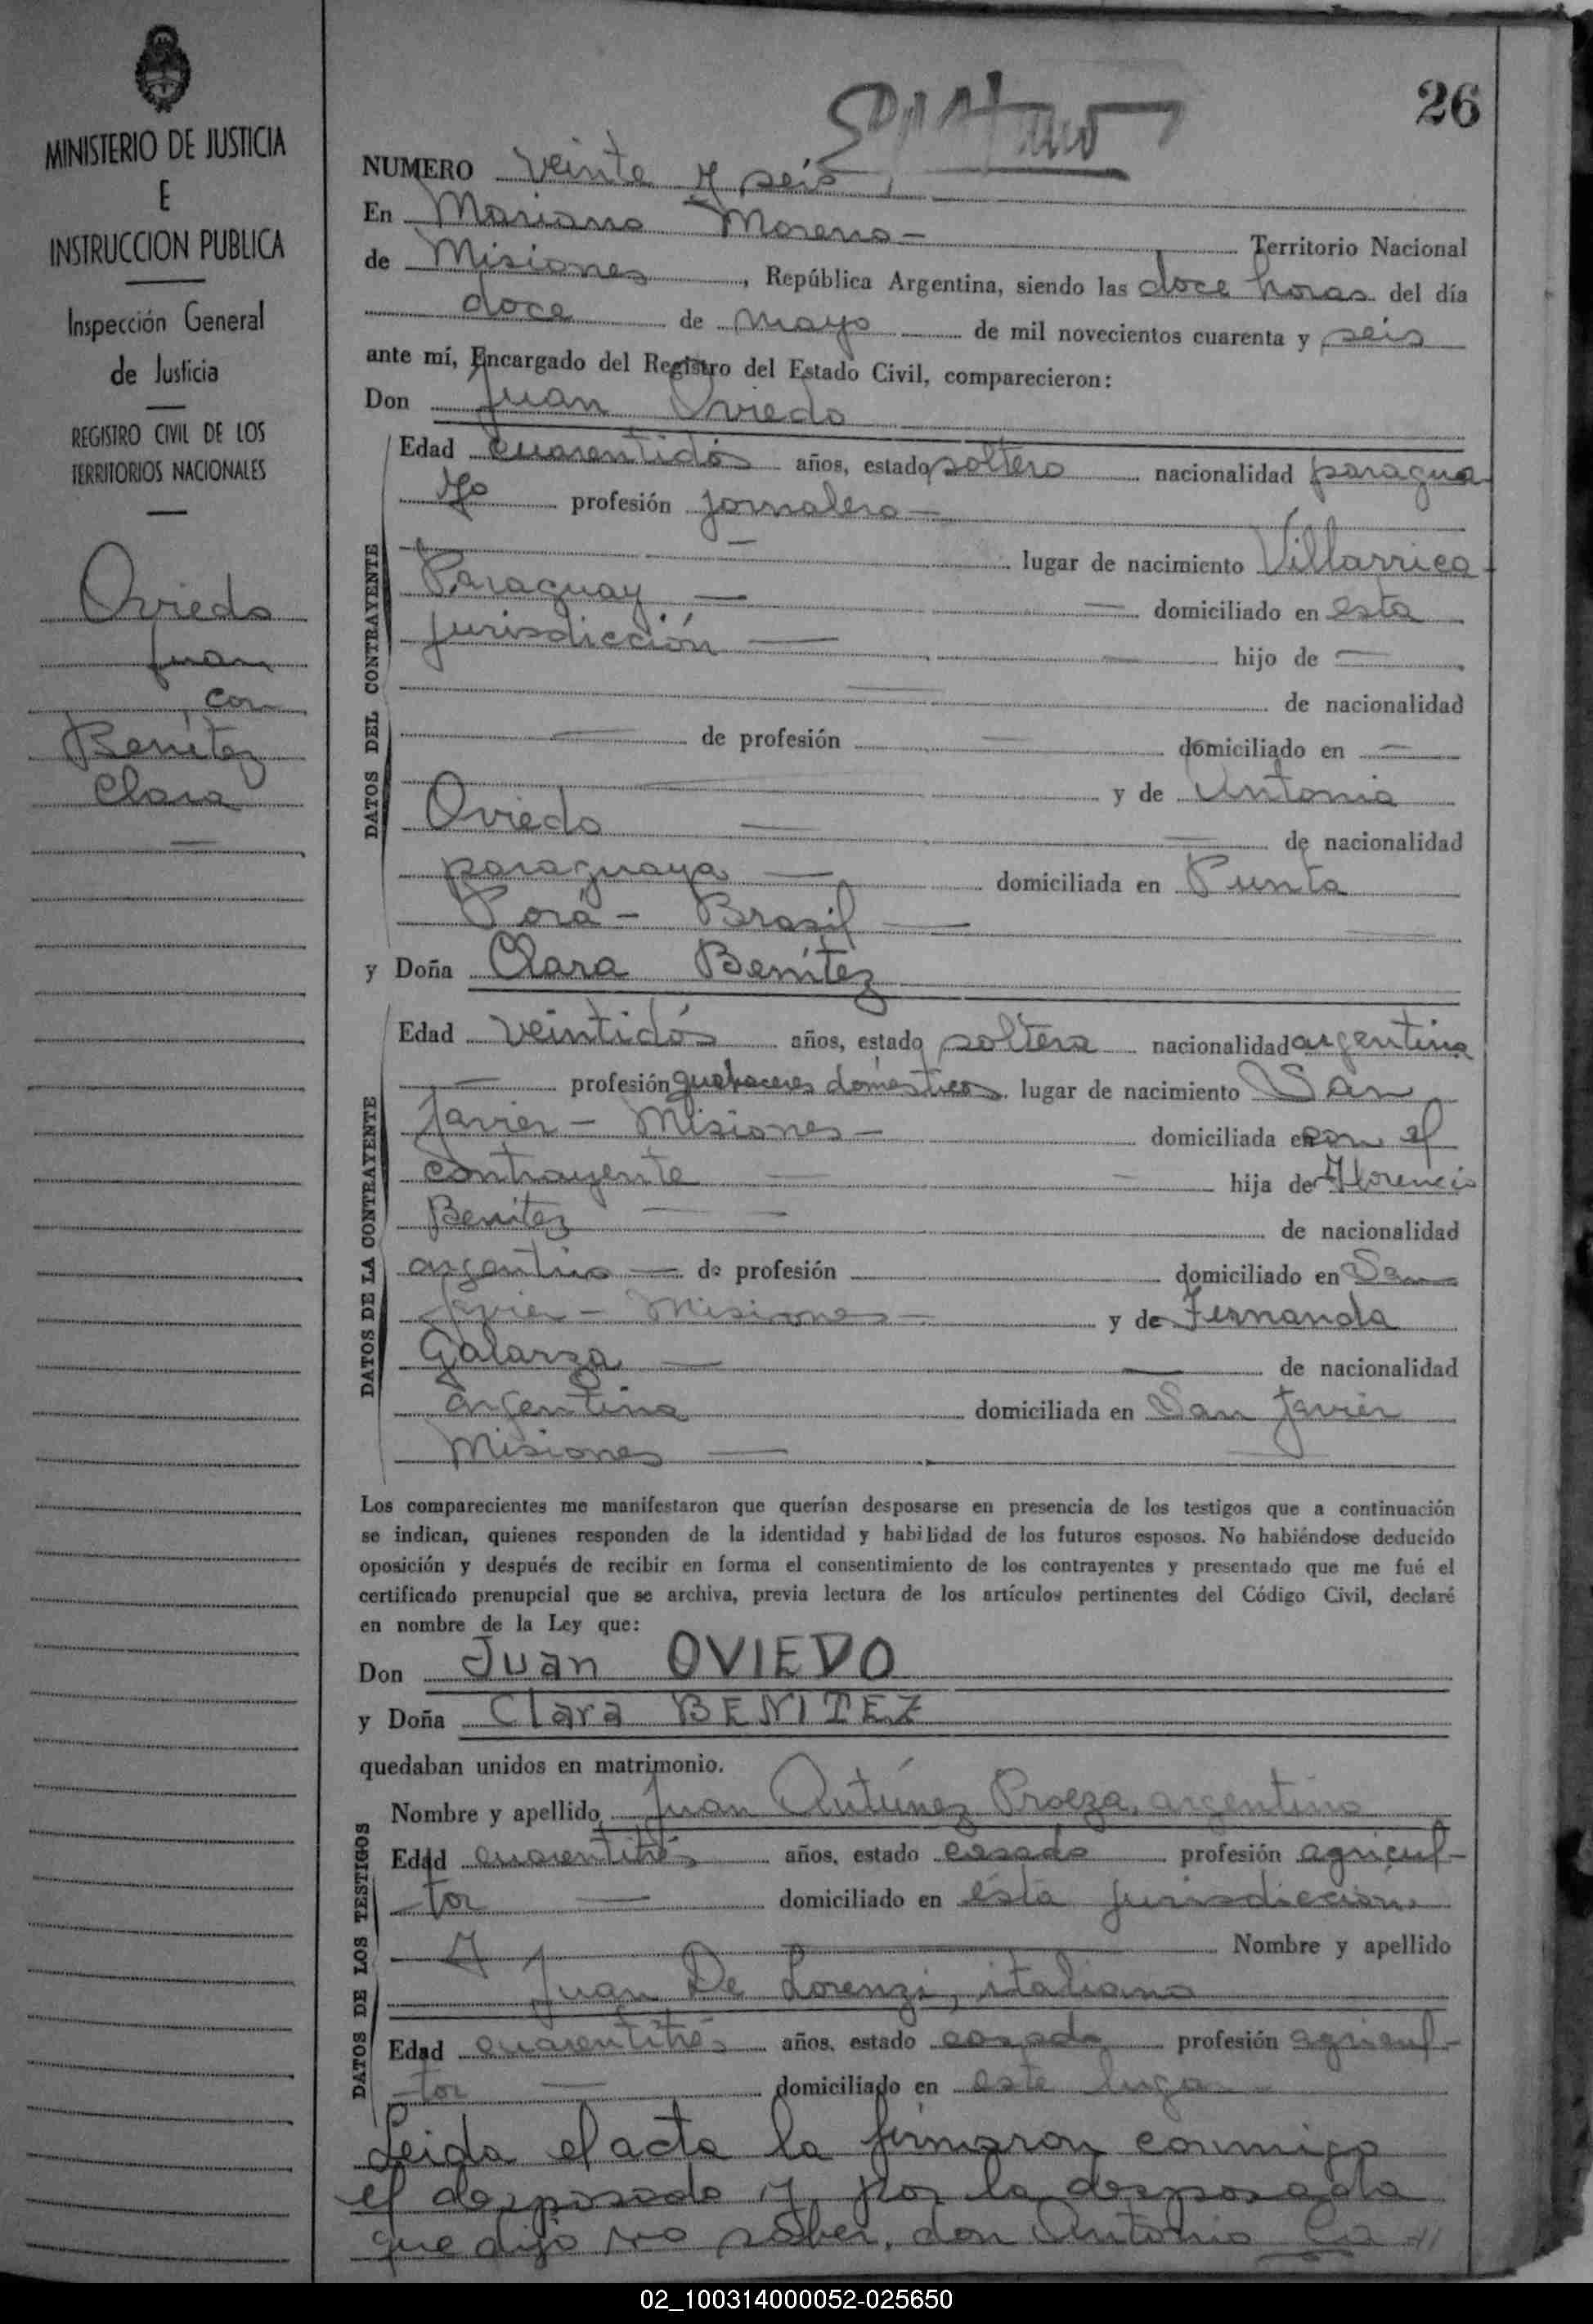 MINISTERIO DE JUSTICIA
E
INSTRUCCION PUBLICA
Inspección General
de Justicia
REGISTRO CIVIL DE LOS
TERRITORIOS NACIONALES
Oviedo
Juan
con
Benítez
Clara
26
NUMERO veinte y seis
En Mariano Moreno - Territorio Nacional
de Misiones, República Argentina, siendo las doce horas del día
doce de mayo de mil novecientos cuarenta y seis
ante mí, Encargado del Registro del Estado Civil, comparecieron:
Don Juan Oviedo
DATOS DEL CONTRAYENTE
Edad cuarentidós años, estado soltero nacionalidad paragua
yo profesión jornalero —
— lugar de nacimiento Villarrica -
Paraguay — domiciliado en esta
jurisdicción — hijo de —
— de nacionalidad
— de profesión — domiciliado en —
— y de Antonia
Oviedo — de nacionalidad
paraguaya — domiciliada en Punta
Porá - Brasil —
y Doña Clara Benítez
DATOS DE LA CONTRAYENTE
Edad veintidós años, estado soltera nacionalidad argentina
— profesión quehaceres domésticos lugar de nacimiento San
Javier - Misiones - domiciliada en con el
contrayente — hija de Florencio
Benítez — de nacionalidad
argentino — de profesión domiciliado en San
Javier - Misiones - y de Fernanda
Galarza — de nacionalidad
argentina domiciliada en San Javier
Misiones —
Los comparecientes me manifestaron que querían desposarse en presencia de los testigos que a continuación
se indican, quienes responden de la identidad y habilidad de los futuros esposos. No habiéndose deducido
oposición y después de recibir en forma el consentimiento de los contrayentes y presentado que me fué el
certificado prenupcial que se archiva, previa lectura de los artículos pertinentes del Código Civil, declaré
en nombre de la Ley que:
Don Juan OVIEDO
y Doña Clara BENITEZ
quedaban unidos en matrimonio.
DATOS DE LOS TESTIGOS
Nombre y apellido Juan Antúnez Proeza, argentino
Edad cuarentitrés años, estado casado profesión agricul-
tor — domiciliado en ésta jurisdicción
y — Nombre y apellido
Juan De Lorenzi, italiano
Edad cuarentitrés años, estado casado profesión agricul-
tor — domiciliado en este lugar
Leida el acta la firmaron conmigo
el desposado y por la desposada
que dijo no saber, don Antonio
02_100314000052-025650